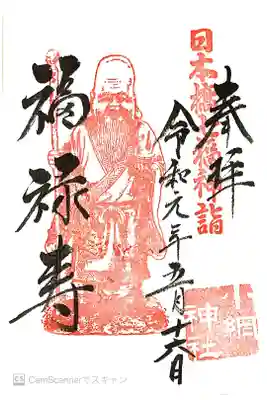 奉拝
日本橋七福神詣
令和元年五月十六日
福禄寿
小網
神社
CamScannerでスキャン